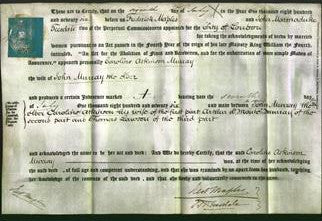 These are to Certify, that on the seventh day of July One thousand eight hundred
and seventy six before us Frederick Maples and John Marmaduke
Teesdale two of the Perpetual Commissioners appointed for the City of London
for taking the acknowledgments of deeds by married
women pursuant to an Act passed in the Fourth Year of the reign of his late Majesty King William the Fourth,
"An Act for the Abolition of Fines and Recoveries, and for the substitution of more simple Modes of
Assurance," appeared personally Caroline Atkinson Murray
the wife of John Murray
and produced a certain Indenture marked A bearing date the seventh day
of July One thousand eight hundred and seventy six and made between John Murray
Caroline Atkinson his wife of the first part Murray of the
second part and Thomas Dawson of the third part
and acknowledged the same to be her act And We do hereby Certify, that the said Caroline Atkinson
Murray was, at the time of her acknowledging
the said deed, of full age and competent understanding, and that she was examined by us apart from her husband, touching
her knowledge of the contents of the said deed, and that she freely and voluntarily consented to the same.
Fredk Maples
J M Teesdale